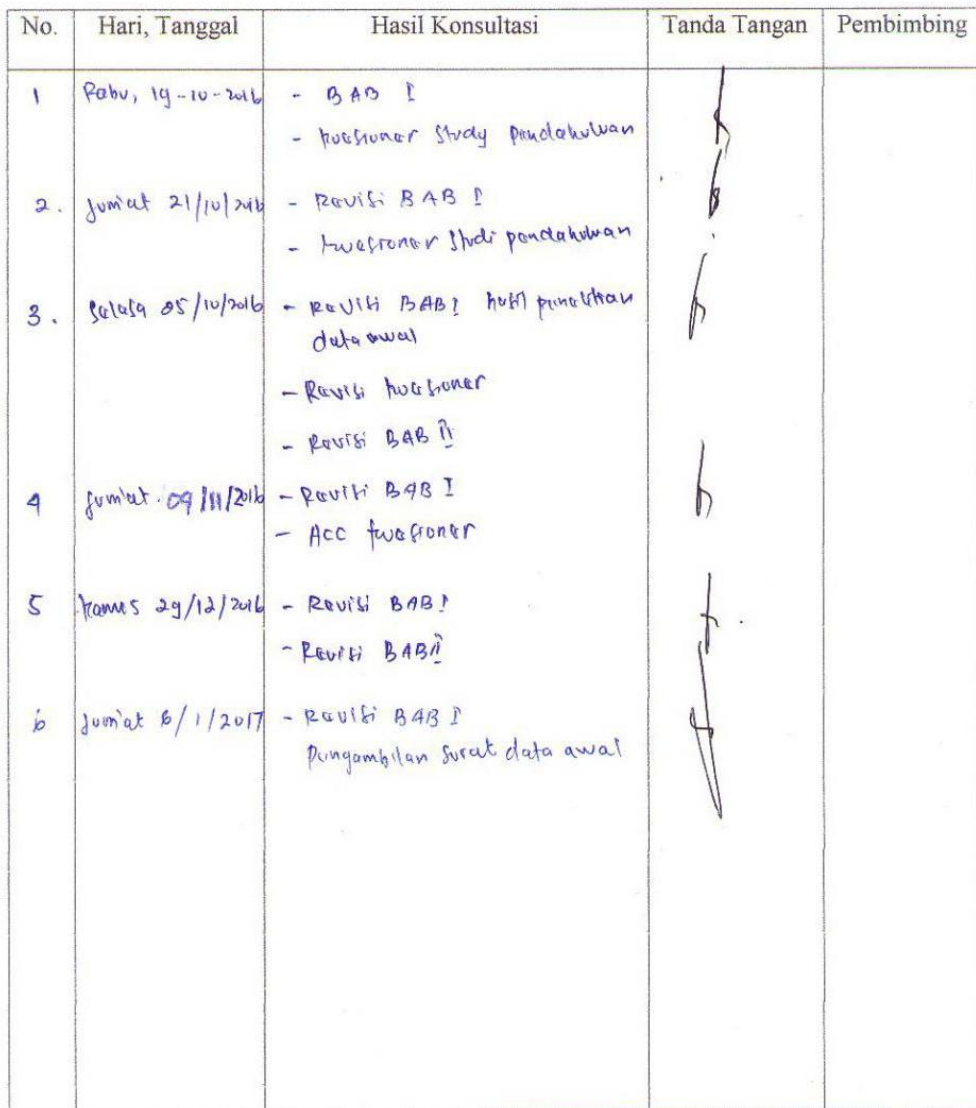 No. Hari, Tanggal Hasil Konsultasi Tanda Tangan Pembimbing
1 Rabu, 19-10-2016 - BAB I
- kuesioner Study Pendahuluan
2. Jum'at 21/10/2016 - Revisi BAB I
- kuesioner Studi pendahuluan
3. Selasa 05/10/2016 - Revisi BAB I hasil penelitian
data awal
- Revisi kuesioner
- Revisi BAB II
4 Jum'at. 09/11/2016 - Revisi BAB I
- Acc kuesioner
5 Kamis 29/12/2016 - Revisi BAB I
- Revisi BAB II
6 Jum'at 6/1/2017 - Revisi BAB I
Pengambilan Surat data awal